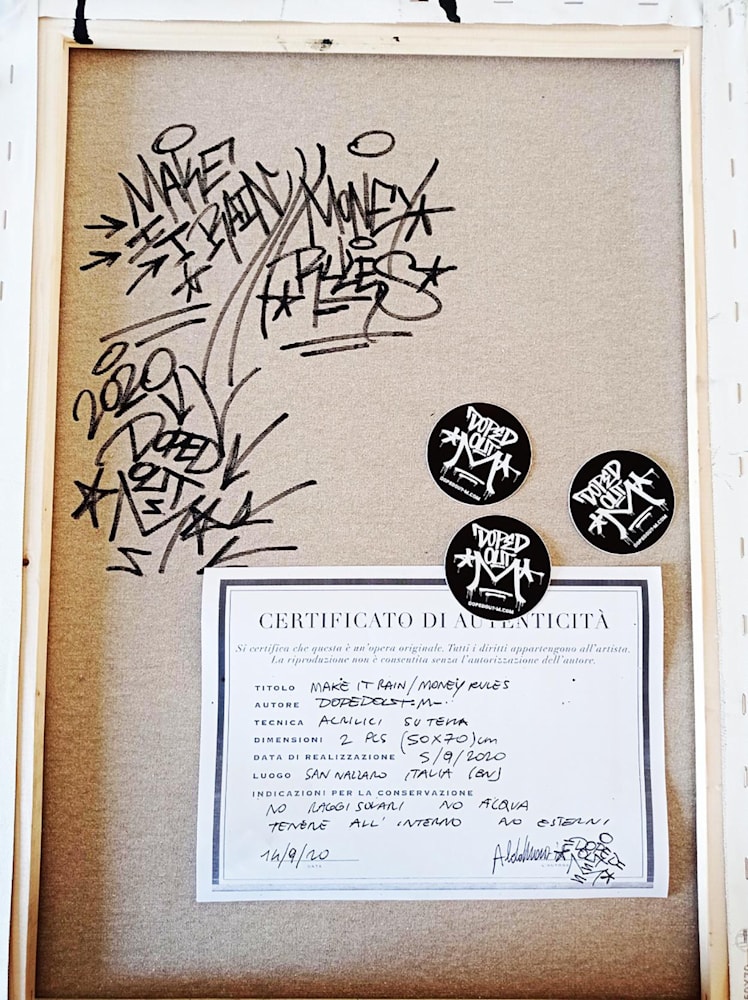 MAKE
IT RAIN
MONEY
RULES
2020
DOPED
OUT
M
DOPED
OUT
M
DOPEDOUT-M.COM
DOPED
OUT
M
DOPEDOUT-M.COM
DOPED
OUT
M
DOPEDOUT-M.COM
CERTIFICATO DI AUTENTICITÀ
Si certifica che questa è un'opera originale. Tutti i diritti appartengono all'artista.
La riproduzione non è consentita senza l'autorizzazione dell'autore.
TITOLO MAKE IT RAIN/MONEY RULES
AUTORE DOPEDOUT-M-
TECNICA ACRILICI SU TELA
DIMENSIONI 2 PCS (50X70)cm
DATA DI REALIZZAZIONE 5/9/2020
LUOGO SAN NAZZARO ITALIA (BN)
INDICAZIONI PER LA CONSERVAZIONE
NO RAGGI SOLARI NO ACQUA
TENERE ALL'INTERNO NO ESTERNI
14/9/20
DOPED
OUT
M